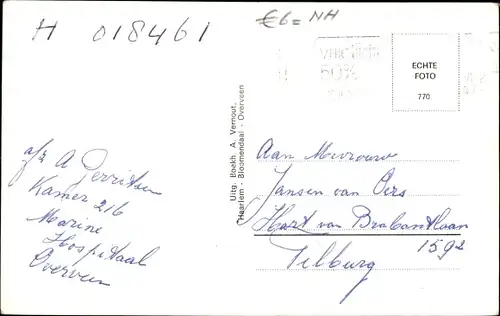 H 018461
€6= NH
50%
ECHTE
FOTO
770
Uitg. Boekh. A. Vernout,
Haarlem - Bloemendaal - Overveen
afz A Gerritsen
Kamer 216
Marine
Hospitaal
Overveen
Aan Mevrouw
Jansen van Oers
Hart van Brabantlaan
1592
Tilburg